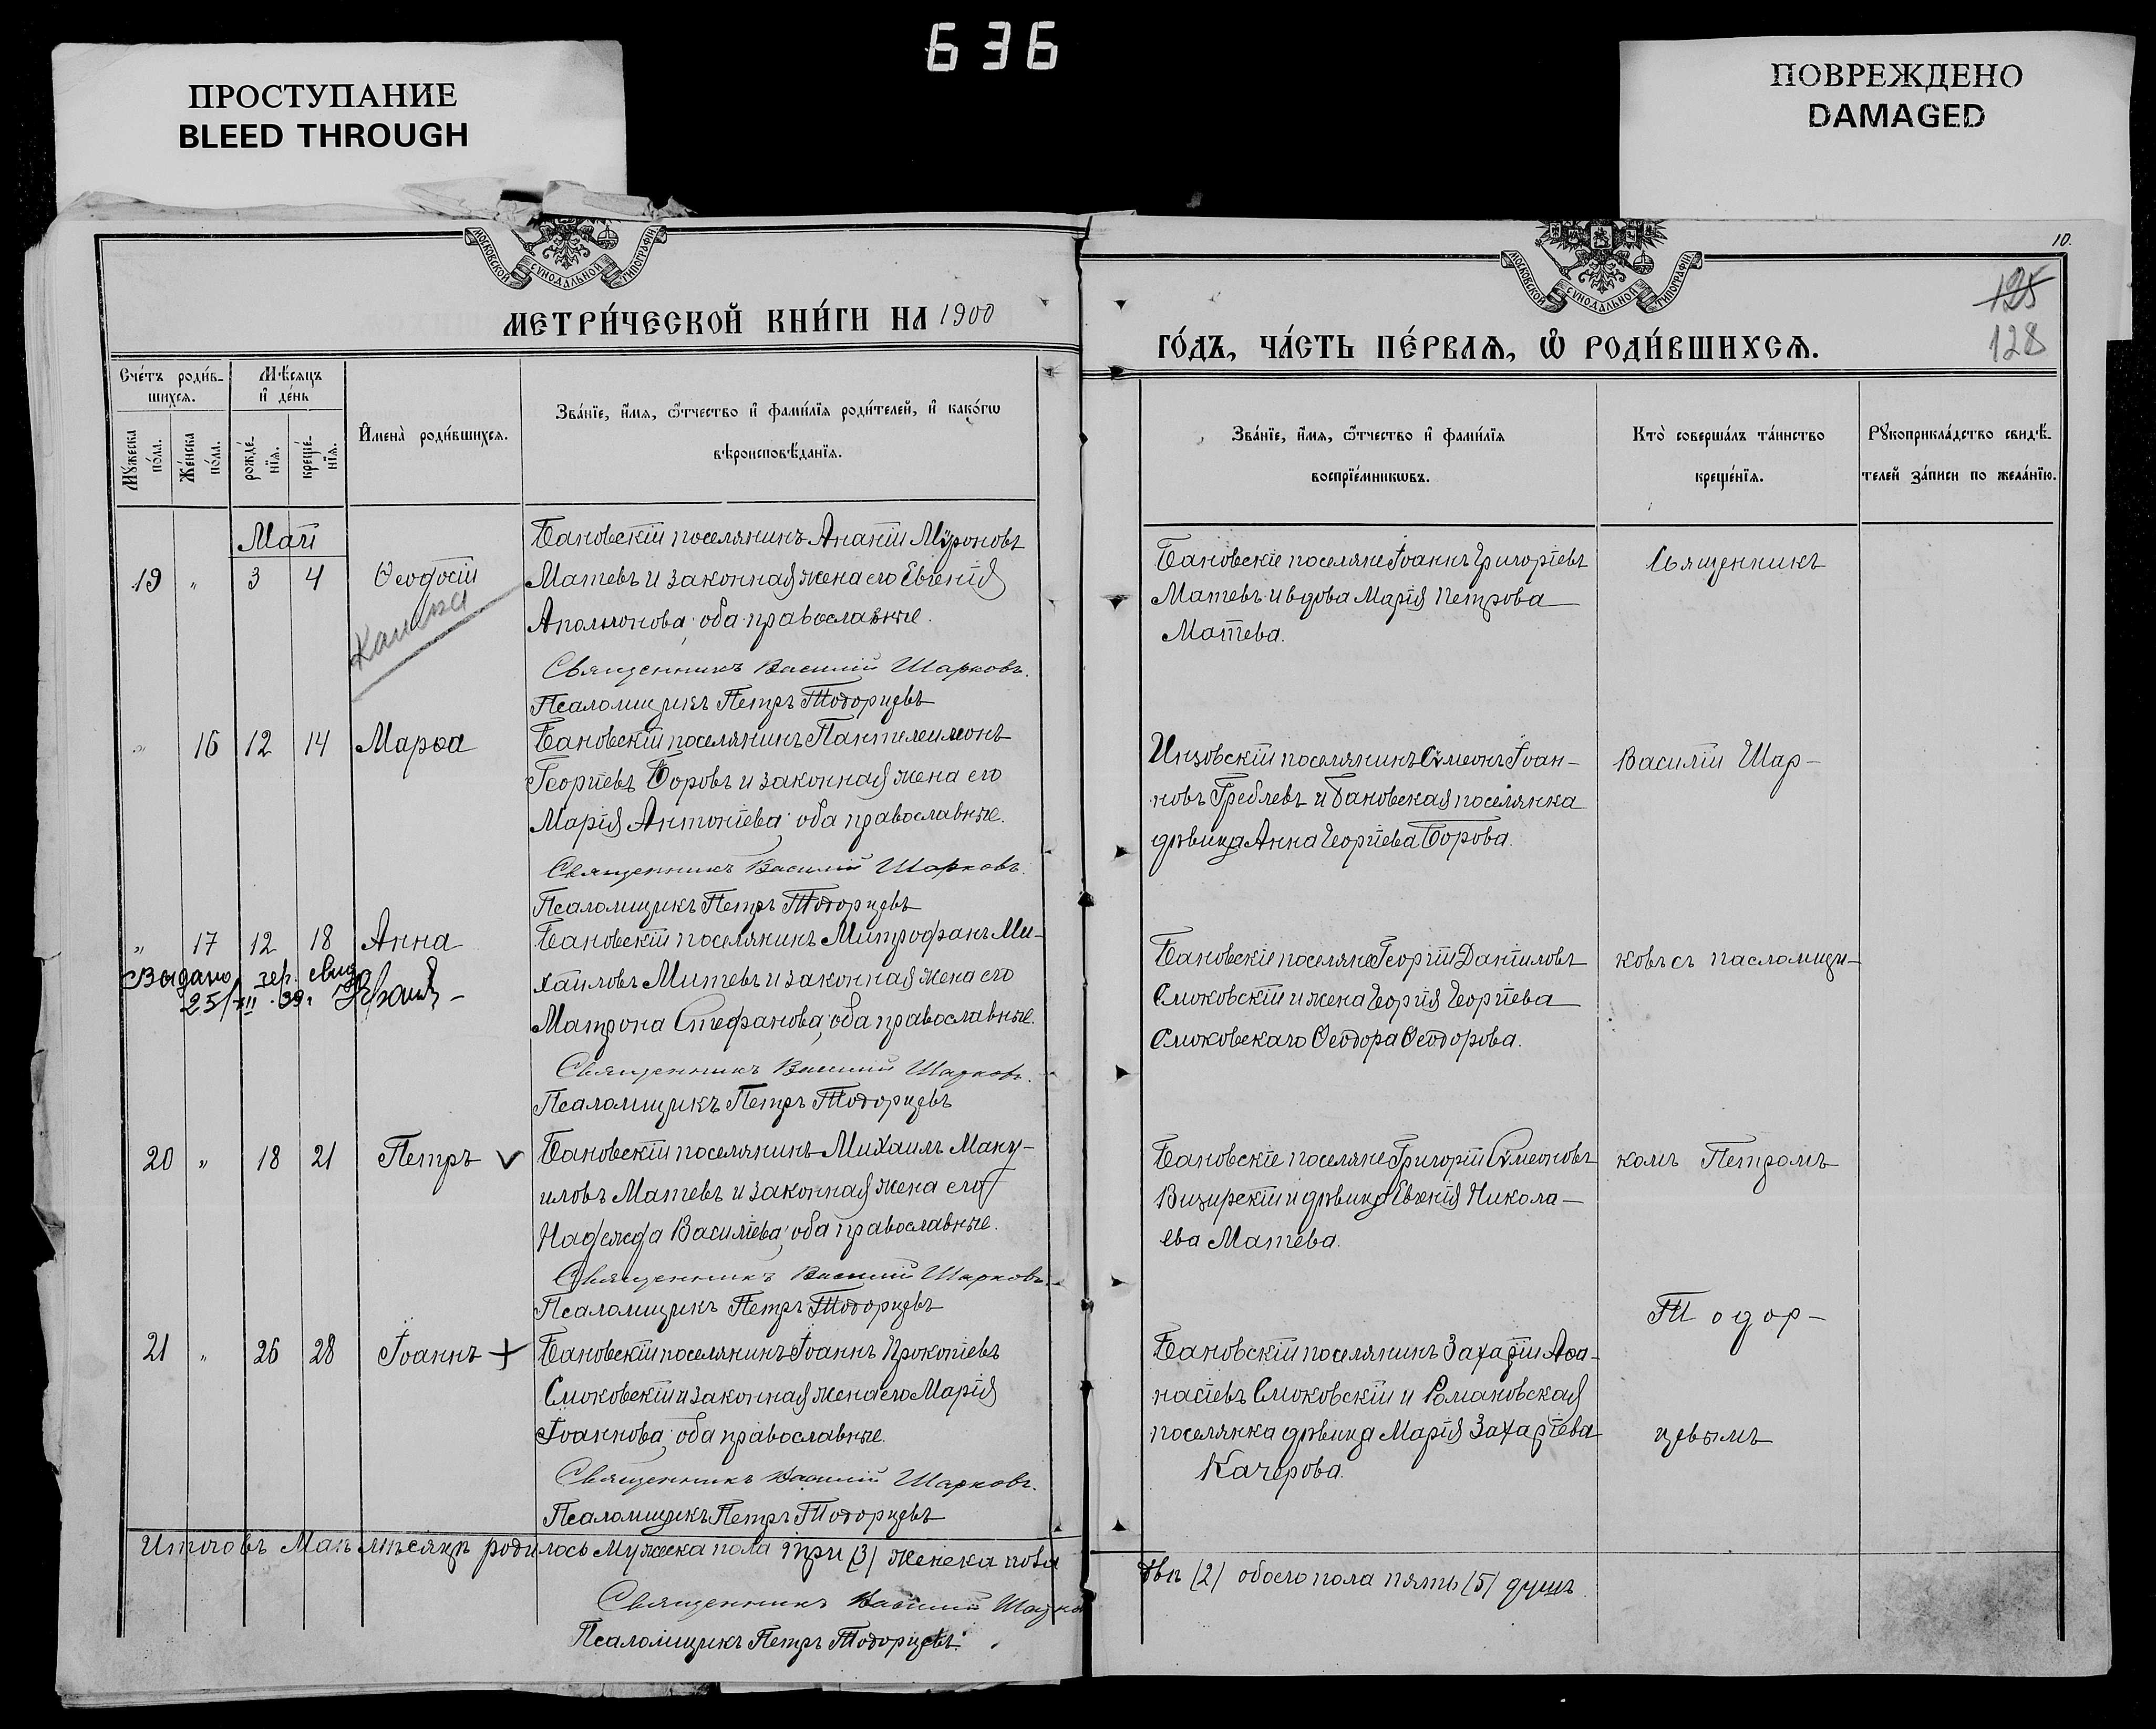 636
ПРОСТУПАНИЕ
BLEED THROUGH
ПОВРЕЖДЕНО
DAMAGED
МОСКОВСКОЙ СѴНОДАЛЬНОЙ ТИПОГРАФІИ
МОСКОВСКОЙ СѴНОДАЛЬНОЙ ТИПОГРАФІИ
10.
125
128
МЕТРИ́ЧЕСКОЙ КНИ́ГИ НА 1900
ГО́ДЪ, ЧА́СТЬ ПЕ́РВАѦ, Ѽ РОДИ́ВШИХСѦ.
Сче́тъ роди́в-
шихсѧ.
Мѣ́сѧцъ
и҆ де́нь
Мꙋ́жеска
по́ла.
Же́нска
по́ла.
рожде́-
нїѧ.
креще́-
нїѧ.
И҆мена̀ роди́вшихсѧ.
Зва́нїе, и҆́мѧ, ѻ҆́тчество и҆ фами́лїѧ роди́телей, и҆ како́гѡ
вѣроисповѣ́данїѧ.
Зва́нїе, и҆́мѧ, ѻ҆́тчество и҆ фами́лїѧ
воспрїе́мникѡвъ.
Кто̀ соверша́лъ та́инство
креще́нїѧ.
Рꙋкоприкла́дство свидѣ́-
телей за́писи по жела́нїю.
Май
19 „ 3 4 Ѳеодосій
Бановскій поселянинъ Ананій Мѵроновъ
Матевъ и законная жена его Евѳенія
Аполлонова; оба православные.
Священникъ Василій Шарковъ.
Псаломщикъ Петръ Тодорцевъ
Бановскіе поселяне Іоаннъ Григоріевъ
Матевъ и вдова Марія Петрова
Матева.
Священникъ
„ 16 12 14 Марѳа
Бановскій поселянинъ Пантелеимонъ
Георгіевъ Боровъ и законная жена его
Марія Антоніева; оба православные.
Священникъ Василій Шарковъ.
Псаломщикъ Петръ Тодорцевъ
Инзовскій поселянинъ Сѵмеонъ Іоан-
новъ Греблевъ и Бановская поселянка
дѣвица Анна Георгіева Борова.
Василій Шар-
„ 17 12 18 Анна
Выдано
25/XII.39г
Бановскій поселянинъ Митрофанъ Ми-
хаиловъ Митевъ и законная жена его
Матрона Стефанова; оба православные.
Священникъ Василій Шарковъ.
Псаломщикъ Петръ Тодорцевъ
Бановскіе поселяне Георгій Даніиловъ
Смоковскій и жена Георгія Георгіева
Смоковскаго Ѳеодора Ѳеодорова.
ковъ съ псаломщи-
20 „ 18 21 Петръ
Бановскій поселянинъ Михаилъ Ману-
иловъ Матевъ и законная жена его
Надежда Василіева; оба православные.
Священникъ Василій Шарковъ.
Псаломщикъ Петръ Тодорцевъ
Бановскіе поселяне Григорій Сѵмеоновъ
Визирскій и дѣвица Евѳенія Никола-
ева Матева.
комъ Петромъ
Тодор-
21 „ 26 28 Іоаннъ +
Бановскій поселянинъ Іоаннъ Прокопіевъ
Смоковскій и законная жена его Марія
Іоаннова; оба православные.
Священникъ Василій Шарковъ.
Псаломщикъ Петръ Тодорцевъ
Бановскій поселянинъ Захарій Аѳа-
насіевъ Смоковскій и Романовская
поселянка дѣвица Марія Захаріева
Качерова.
цевымъ
Итого въ Маѣ мѣсяцѣ родилось мужеска пола три (3) женска пола
двѣ (2) обоего пола пять (5) душъ
Священникъ Василій Шарко
Псаломщикъ Петръ Тодорцевъ.